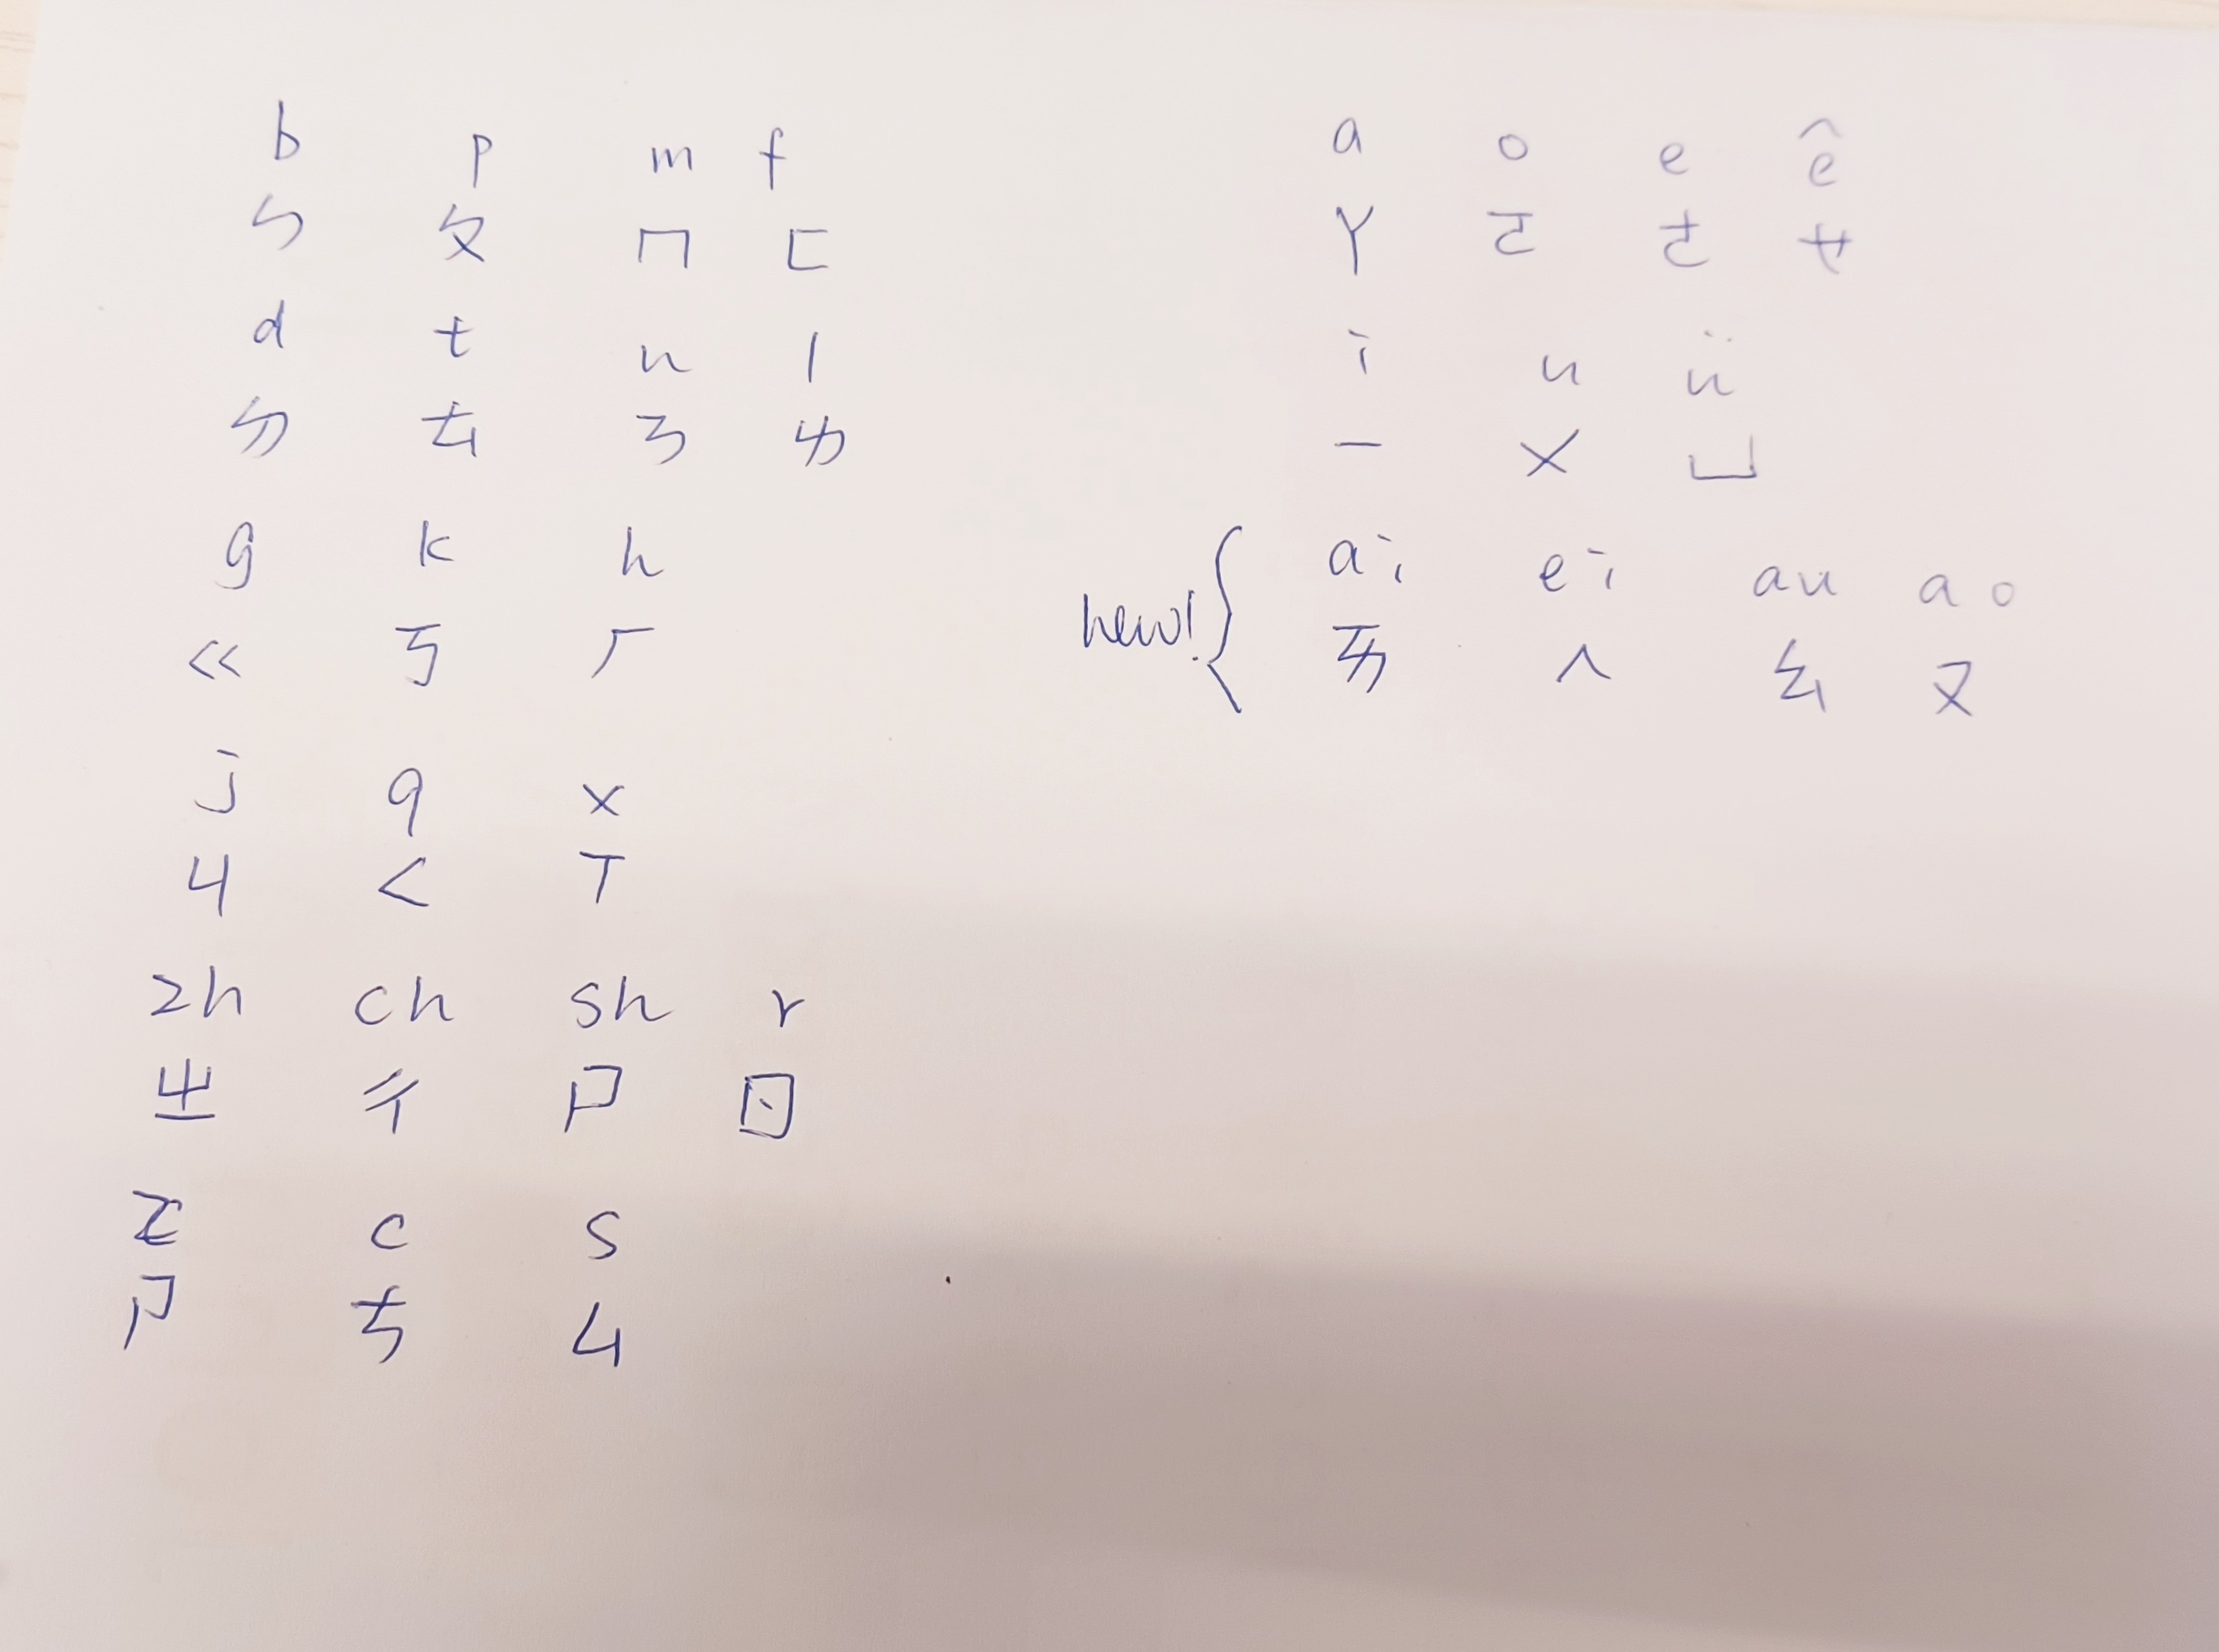 b p m f
ㄅ ㄆ ㄇ ㄈ
d t n l
ㄉ ㄊ ㄋ ㄌ
g k h
ㄍ ㄎ ㄏ
j q x
ㄐ ㄑ ㄒ
zh ch sh r
ㄓ ㄔ ㄕ ㄖ
z c s
ㄕ ㄘ ㄙ
a o e ê
ㄚ ㄛ ㄜ ㄝ
i u ü
ㄧ ㄨ ㄩ
new!
ai ei au ao
ㄞ ㄟ ㄠ ㄡ